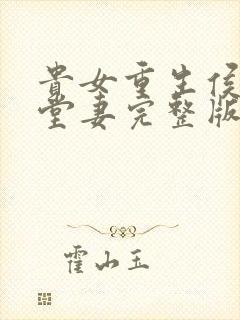 貴女重生侯
堂妻完整版
霍山玉